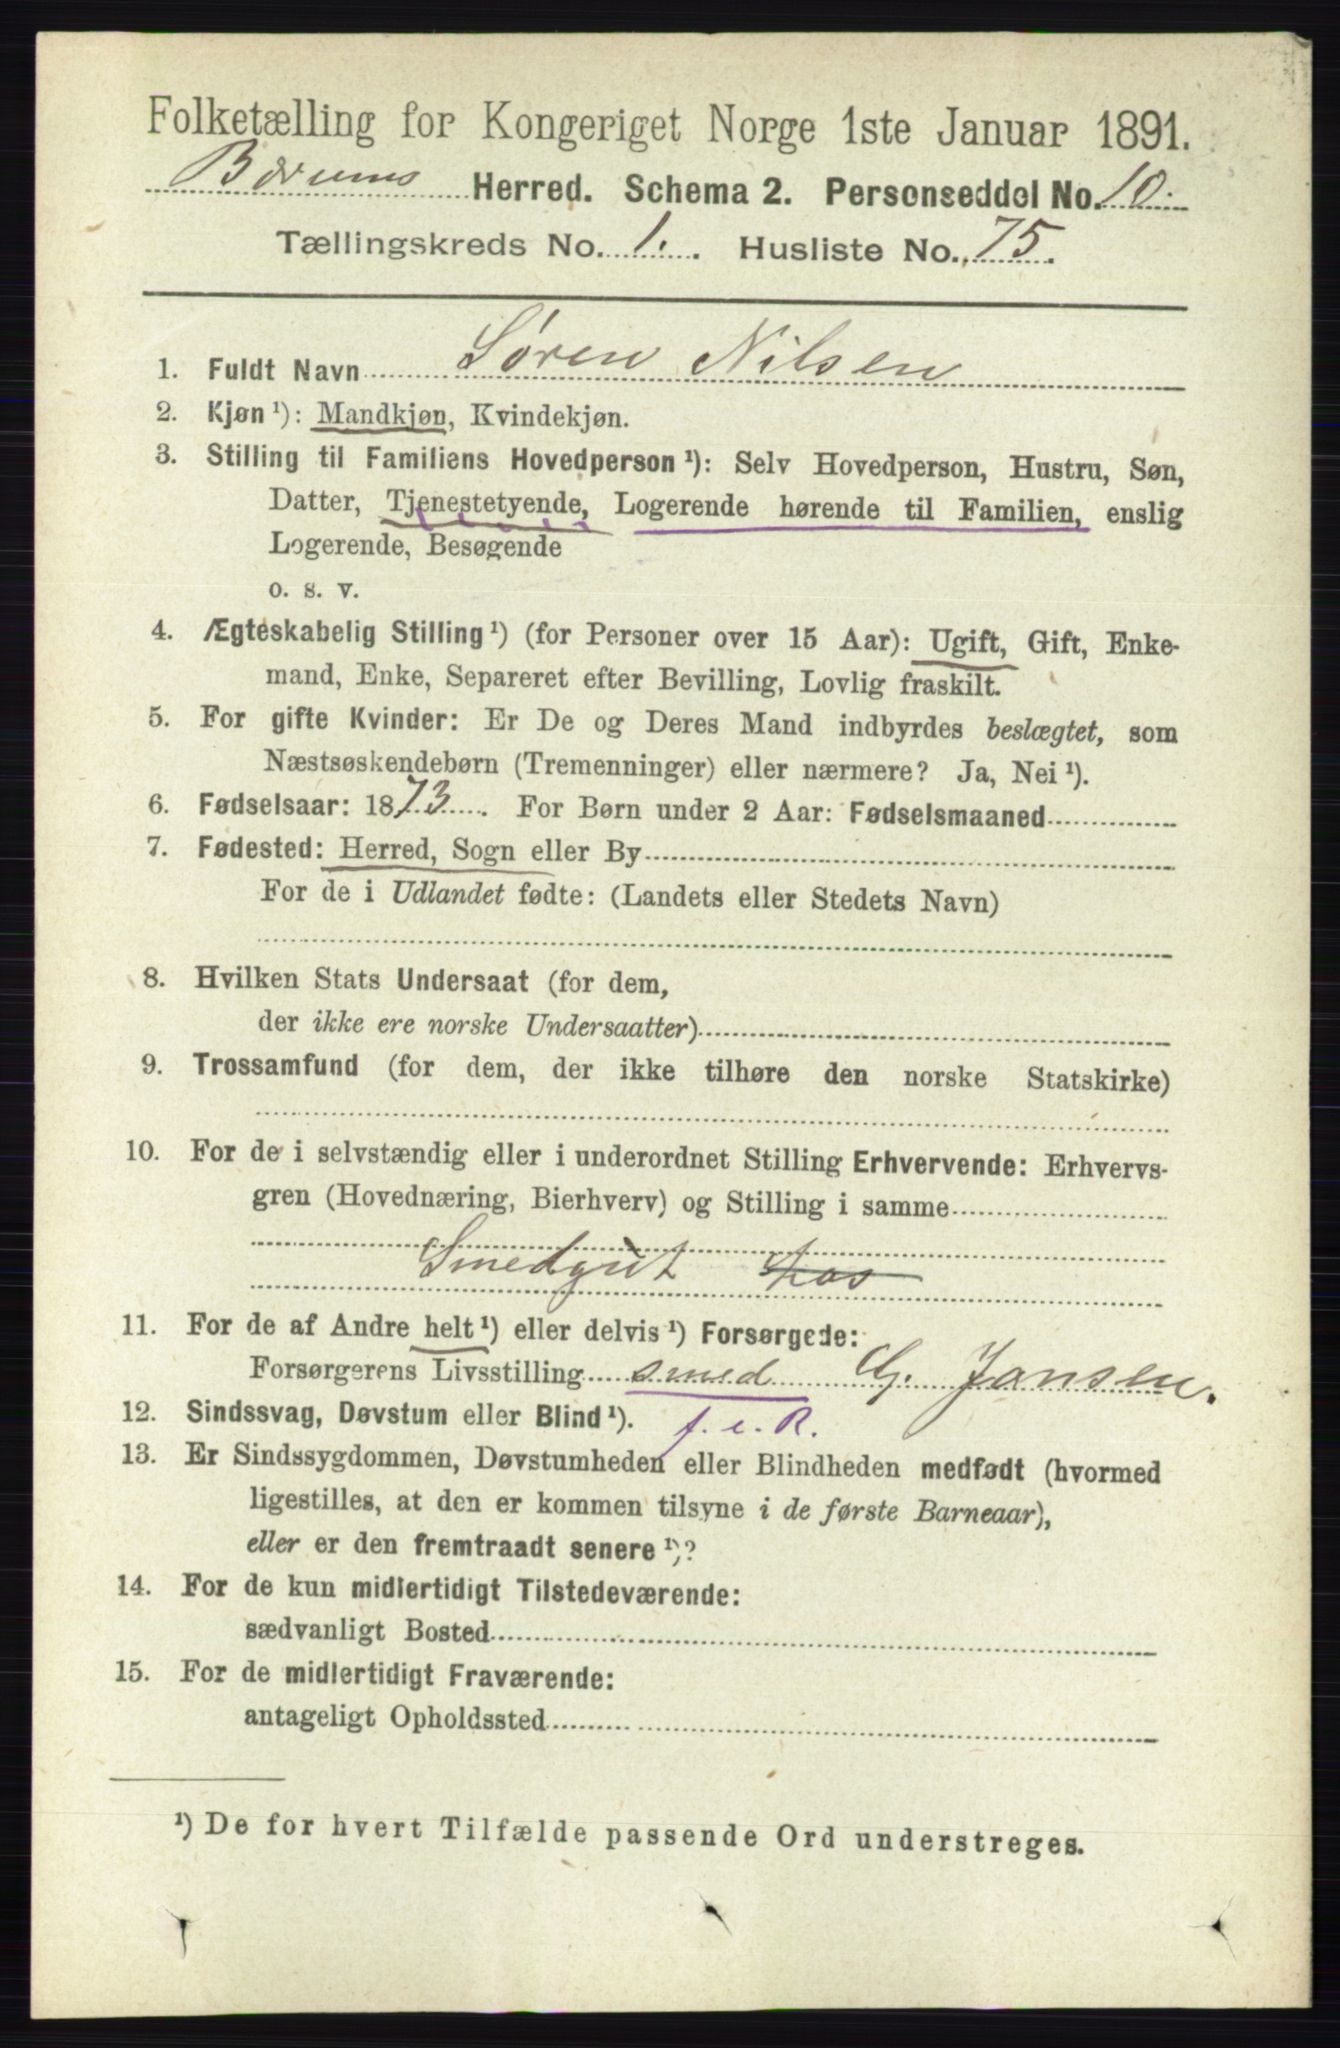 Folketælling for Kongeriget Norge 1ste Januar 1891.
Bærums Herred. Schema 2. Personseddel No. 10.
Tællingskreds No. 1. Husliste No. 75.
1. Fuldt Navn Søren Nilsen
2. Kjøn¹): Mandkjøn, Kvindekjøn.
3. Stilling til Familiens Hovedperson¹): Selv Hovedperson, Hustru, Søn,
Datter, Tjenestetyende, Logerende hørende til Familien, enslig
Logerende, Besøgende
o. s. v.
4. Ægteskabelig Stilling¹) (for Personer over 15 Aar): Ugift, Gift, Enke-
mand, Enke, Separeret efter Bevilling, Lovlig fraskilt.
5. For gifte Kvinder: Er De og Deres Mand indbyrdes beslægtet, som
Næstsøskendebørn (Tremenninger) eller nærmere? Ja, Nei¹).
6. Fødselsaar: 1873. For Børn under 2 Aar: Fødselsmaaned
7. Fødested: Herred, Sogn eller By
For de i Udlandet fødte: (Landets eller Stedets Navn)
8. Hvilken Stats Undersaat (for dem,
der ikke ere norske Undersaatter)
9. Trossamfund (for dem, der ikke tilhøre den norske Statskirke)
10. For de i selvstændig eller i underordnet Stilling Erhvervende: Erhvervs-
gren (Hovednæring, Bierhverv) og Stilling i samme
Smedgut hos
11. For de af Andre helt¹) eller delvis¹) Forsørgede:
Forsørgerens Livsstilling smed G. Jansen.
12. Sindssvag, Døvstum eller Blind¹). f. e. R.
13. Er Sindssygdommen, Døvstumheden eller Blindheden medfødt (hvormed
ligestilles, at den er kommen tilsyne i de første Barneaar),
eller er den fremtraadt senere¹)?
14. For de kun midlertidigt Tilstedeværende:
sædvanligt Bosted
15. For de midlertidigt Fraværende:
antageligt Opholdssted
¹) De for hvert Tilfælde passende Ord understreges.